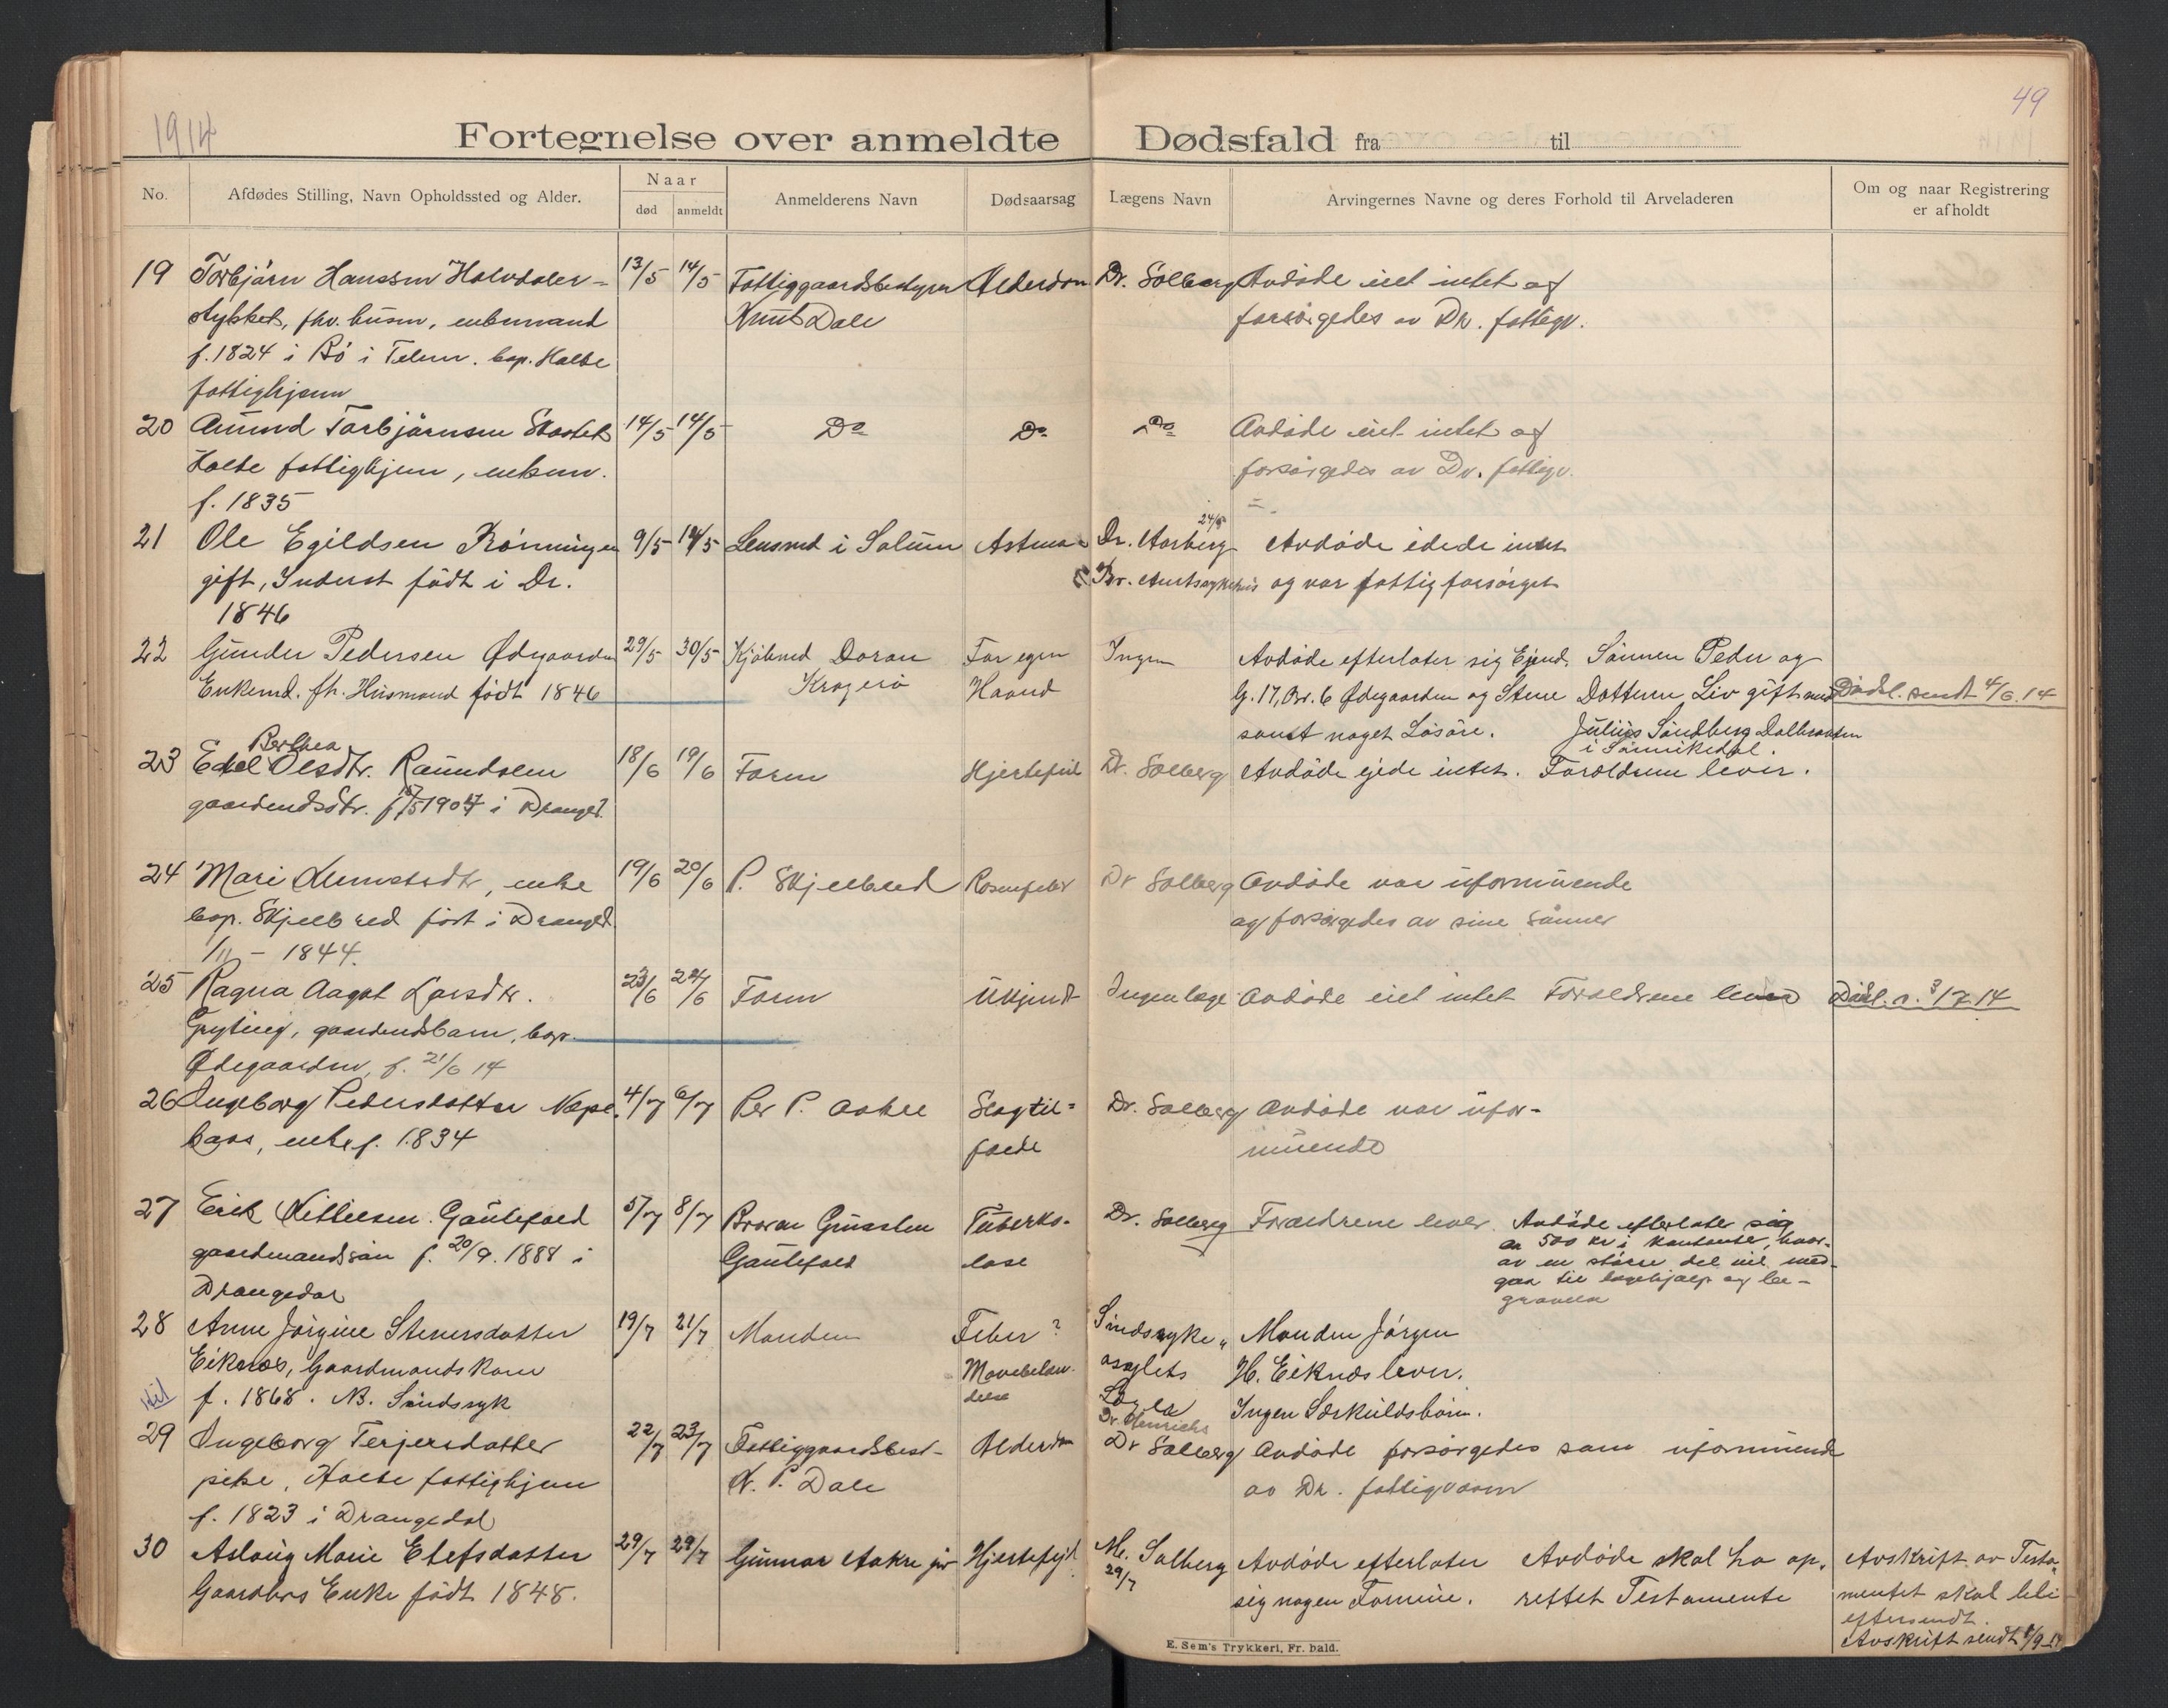 1914
49
Fortegnelse over anmeldte Dødsfald fra til
No.
Afdødes Stilling, Navn Opholdssted og Alder.
Naar
død
anmeldt
Anmelderens Navn
Dødsaarsag
Lægens Navn
Arvingernes Navne og deres Forhold til Arveladeren
Om og naar Registrering
er afholdt
19 Torbjørn Hanssen Halvdaler- 13/5 14/5 Fattiggaardsbestyrer Alderdom Dr. Solberg Avdøde eiet intet og
stykket, fhv. husm, enkemand Knut Dale forsørgedes av Dr. fattigv.
f. 1824 i Bø i Telem. bop. Holte
fattighjem
20 Amund Torbjørnsen 14/5 14/5 Do Do Do Avdøde eiet intet og
Holte fattighjem, enkem. forsørgedes av Dr. fattigv.
f. 1835
24/5
21 Ole Egildsen Rønningen 9/5 14/5 Lensmd i Solum Astma Dr. Aarberg Avdøde eiede intet
gift, Inderst født i Dr. Br. Amtssykehus og var fattigforsørget
1846
22 Gunder Pedersen Ødegaarden 29/5 30/5 Kjøbmd Doran For egen Ingen Avdøde efterlater sig Ejend. Sønnen Peder og
Enkemd. fh. Husmand født 1846 Kragerø Haand G. 17, Br. 6 Ødegaarden og Stene Datteren Liv gift med Dødsf. sendt 4/6.14
samt noget Løsøre. Julius Sandberg Dalbraaten
i Sannikedal.
Berthea
23 Edel Olsdtr. Raundalen 18/6 19/6 Faren Hjertefeil Dr. Solberg Avdøde ejede intet. Forældrene lever.
gaardmdsdtr. 1907 i Drangd.
24 Mari enke 19/6 20/6 P. Skjelbred Rosenfeber Dr Solberg Avdøde var uformuende
bop. Skjelbred født i Drangd. og forsørgedes av sine sønner
1/11 - 1844.
25 Ragna Aagot Larsdtr. 23/6 24/6 Faren Ukjendt Ingen læge Avdøde eiet intet Forældrene lever Dødsf. s. 3/7 14
Gryting, gaardmdsbarn, bop.
Ødegaarden, f. 21/6 14
26 Ingeborg Pedersdatter Næpe- 4/7 6/7 Per P. Aakre Slagtil- Dr. Solberg Avdøde var ufor-
baas, enke f. 1834 fælde muende
27 Erik Kittilsen Gautefald 5/7 8/7 Broren Gunsten Tuberku- Dr. Solberg Forældrene lever. Avdøde efterlater sig
gaardmandssøn f. 20/9. 1888 i Gautefald lose ca 500 kr i kontanter, hvor-
Drangedal av en større del vil med-
gaa til lægehjælp og be-
gravelse
28 Anne Jørgine Stenersdatter 19/7 21/7 Manden Feber? Sindssyke- Manden Jørgen
Eiknæs, Gaardmandskone Mavebetæn- asylets H. Eiknæs lever.
f. 1868. NB. Sindssyk delse Læge Ingen Særkuldsbørn.
Dr. Henrichs
29 Ingeborg Terjersdatter 22/7 23/7 Fattiggaardsbest- Alderdom Dr Solberg Avdøde forsørgedes som uformuende
pike, Holte fattighjem K. P. Dale av Dr. fattigvæsen
f. 1823 i Drangedal
30 Aslaug Marie Elefsdatter 29/7 29/7 Gunnar Aakre jur Hjertefejl Solberg Avdøde efterlater Avdøde skal ha op- Avskrift av Testa-
Gaardbrs Enke født 1848. 29/7 sig nogen Formue. rettet Testamente mentet skal bli
eftersendt.
Avskrift sendt 1/9-14
E. Sem's Trykkeri, Fr. hald.